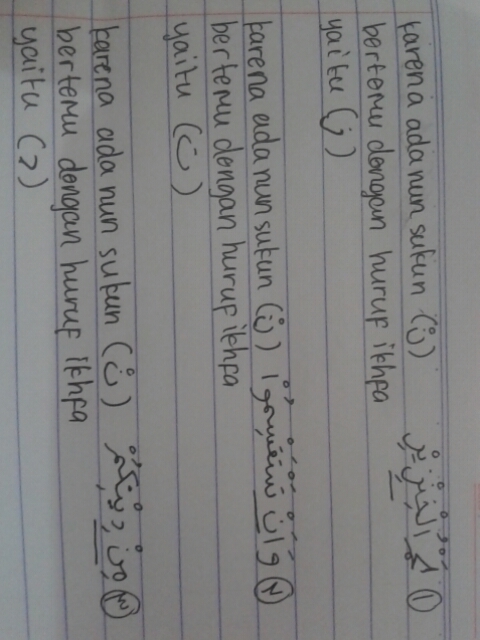 karena ada nun sukun (نْ) ① لَحْمُ الْخِنْزِيْرِ
bertemu dengan huruf ikhfa
yaitu (ز)
karena ada nun sukun (نْ) ② وَاَنْ تَسْتَقْسِمُوْا
bertemu dengan huruf ikhfa
yaitu (ت)
karena ada nun sukun (نْ) ③ مِنْ دِيْنِكُمْ
bertemu dengan huruf ikhfa
yaitu (د)